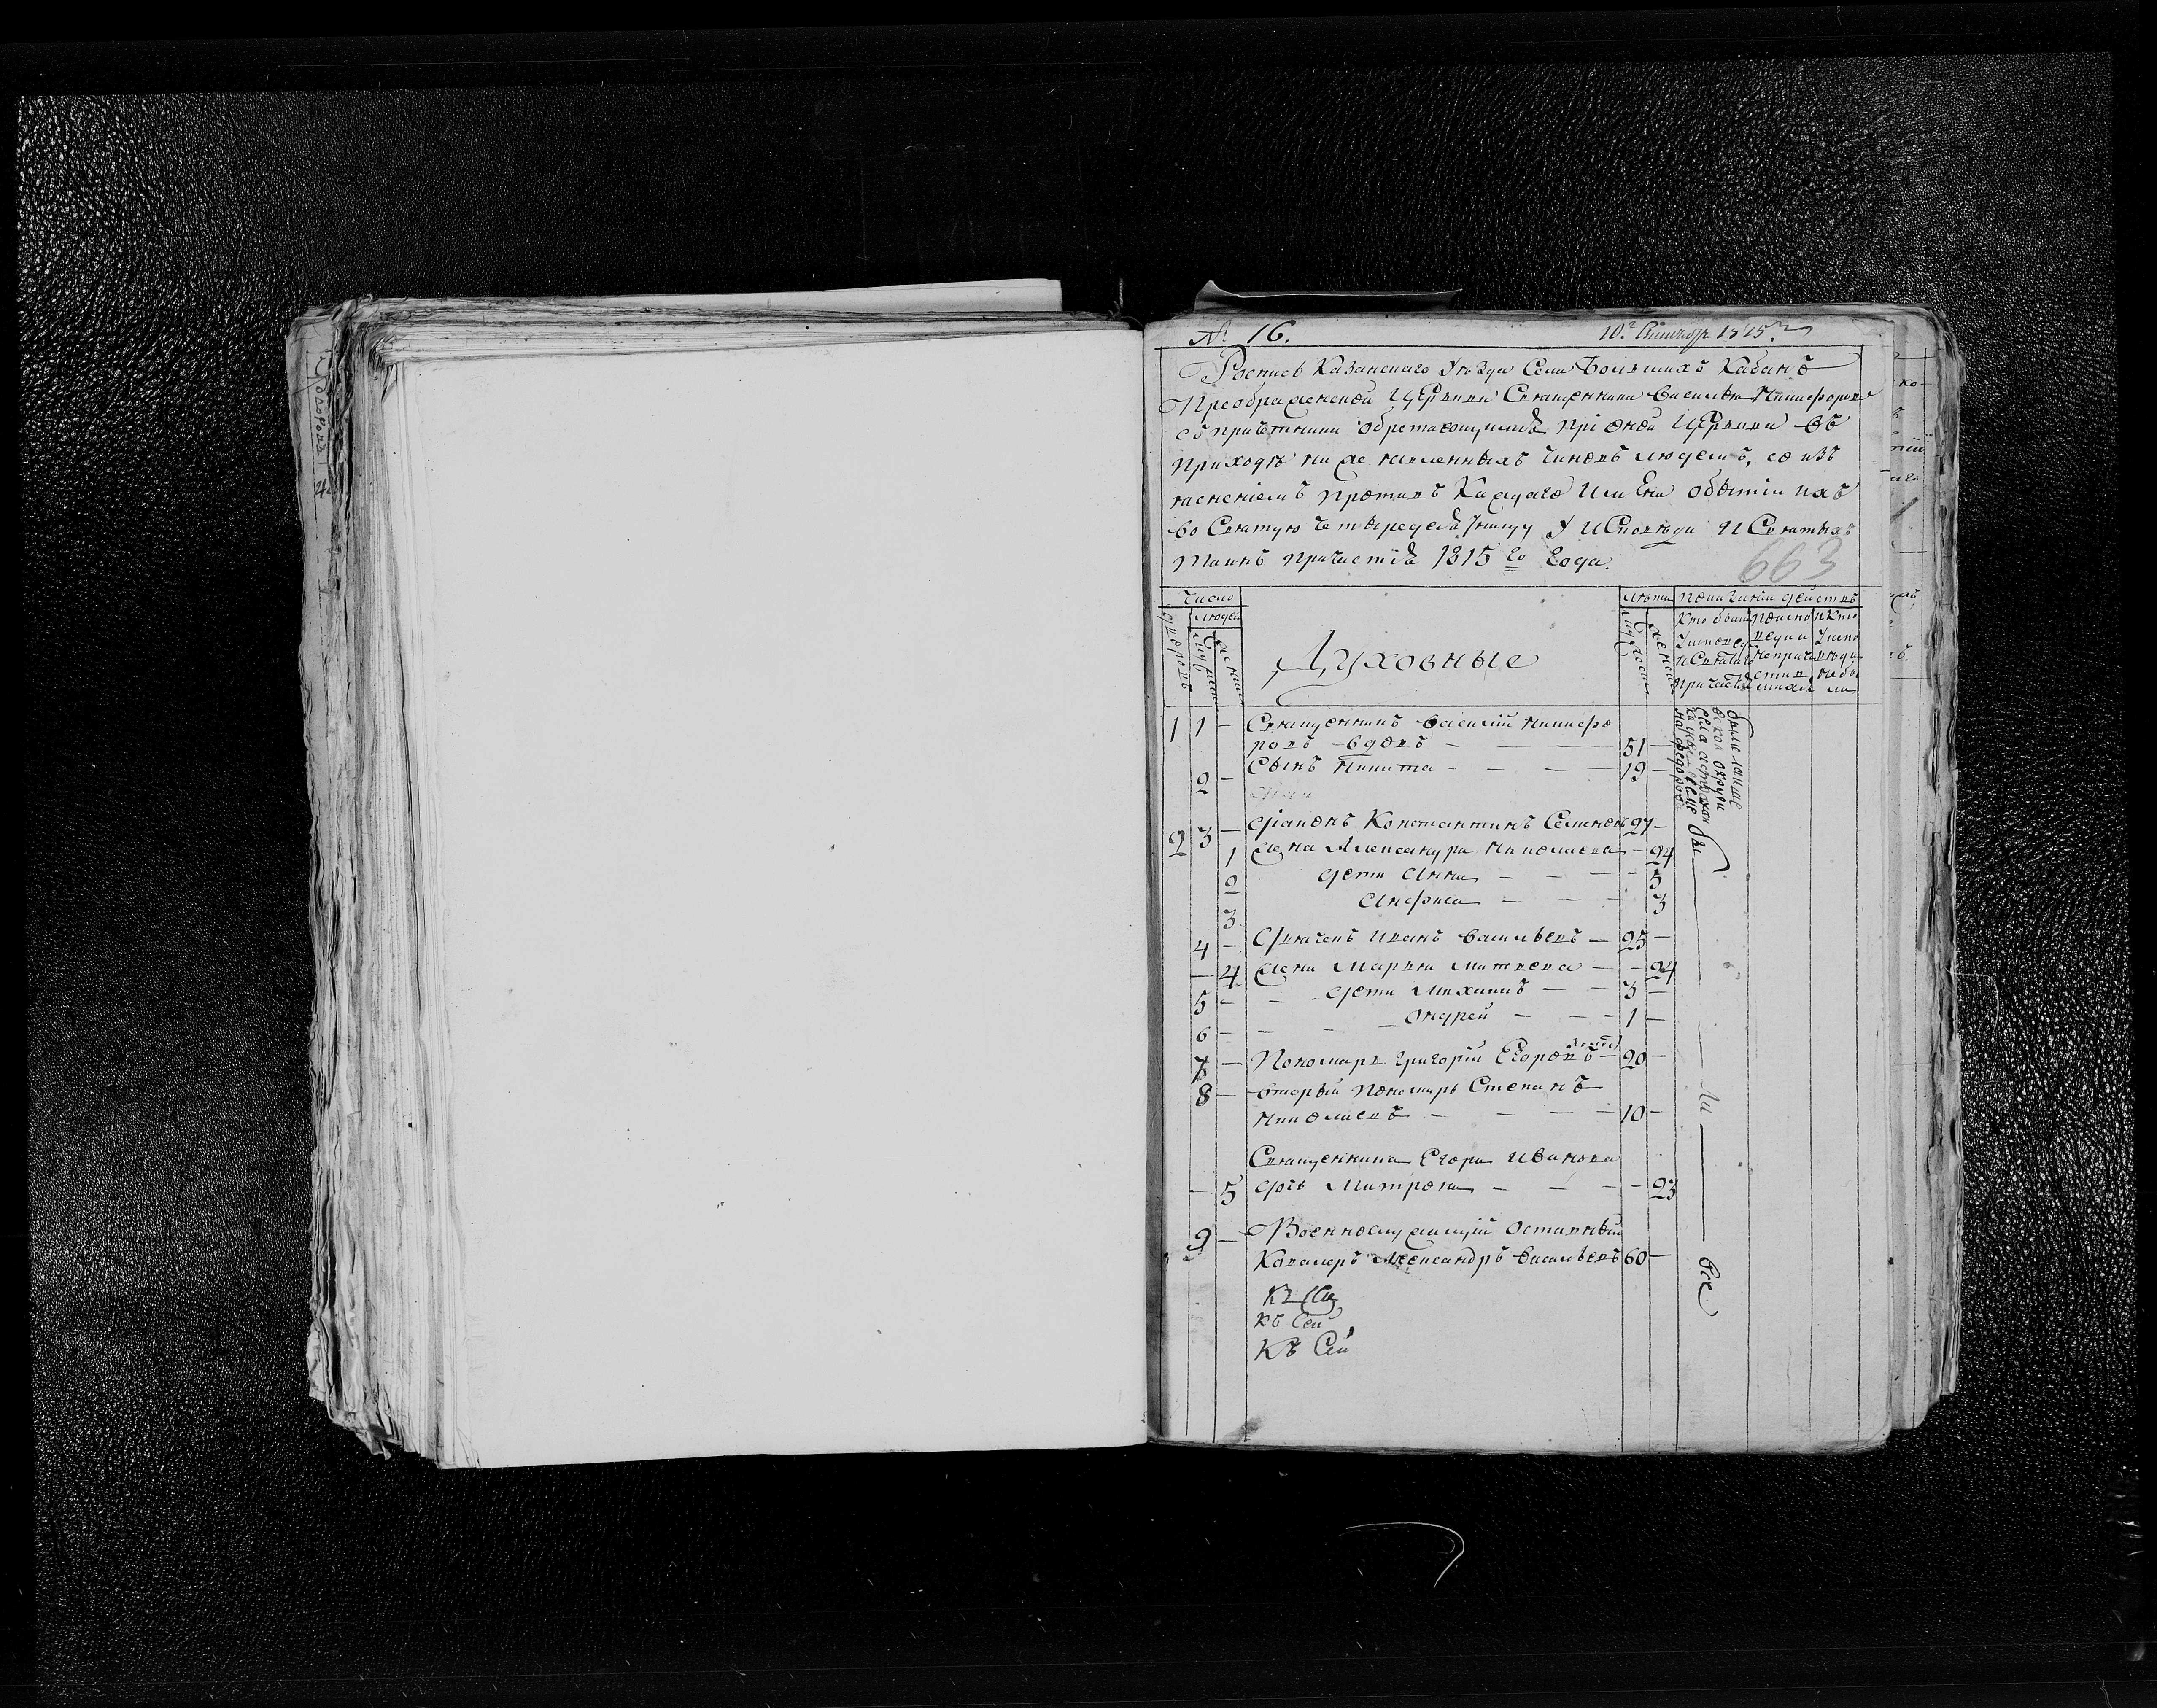 № 16.
10го Октября 1815го
Роспись Казанскаго Уезда Села Больших Кабанъ
Преображенской Церкви Священника Василья Никифорова
съ причетники обретающимся при оной Церкви въ
приходе ниже явленныхъ чиновъ людемъ, со изъ
яснениемъ противъ Каждаго Имени бытии ихъ
во Святую четыредесятницу У Исповеди И Святыхъ
Таинъ Причастия 1815 го Года.
663
Число
людей
дворовъ
мужеска
женска
Духовные
лета
мужеска
женска
Показании действъ
Кто были У исповеди и Святаго причастия
Кто исповедались не причастились
Кто У исповеди не были
1 1 — Священникъ Василий Никифо
ровъ вдовъ — 51 —
2 — Сынъ Никита — 19 —
2 3 — Диаконъ Константинъ Семеновъ 27 —
1 Жена Александра Николаева — 24
2 дети Анна — 5
3 Анфиса — 3
4 — Дьячекъ Иванъ Васильевъ — 25 —
— 4 Жена Марья Матвеева — 24
5 — дети Михаилъ — 3 —
6 — Андрей — 1 —
7 — Пономарь Григорий Егоровъ — 20 —
8 — Вторый Пономарь Степанъ
Николаевъ — 10 —
Священника Егора Иванова
— 5 дочь Матрона — 23
9 — Военнослужащий Отставной
Кавалеръ Александръ Васильевъ 60 —
Къ Сей
Къ Сей
Къ Сей
бы
ли
все